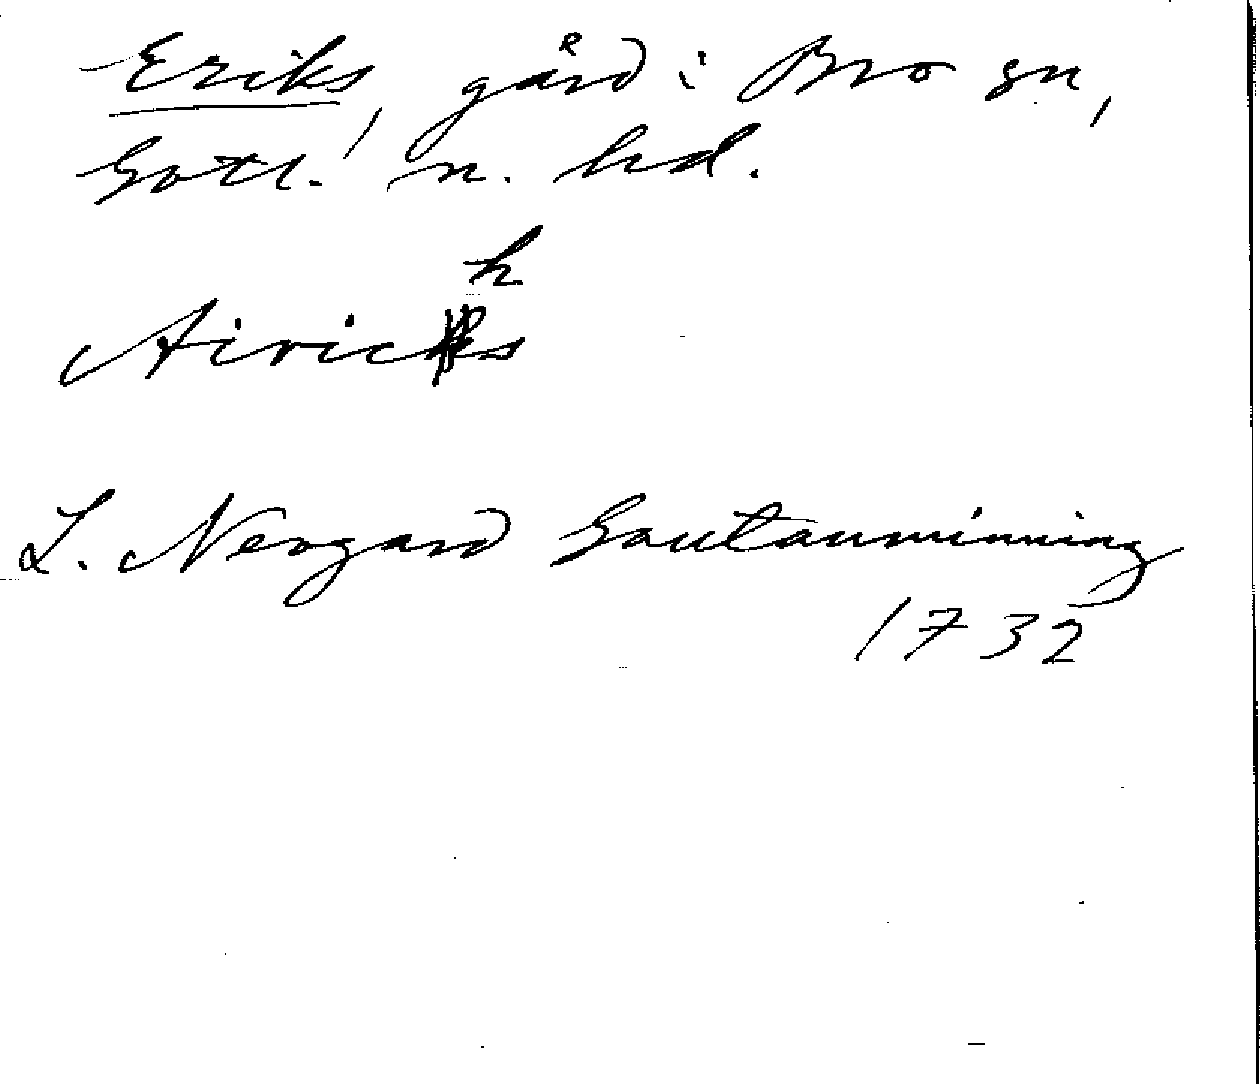 Eriks, gård i Bro sn,
Gotl. n. hd.
Airichs
L. Neogard Gautauminning
1732